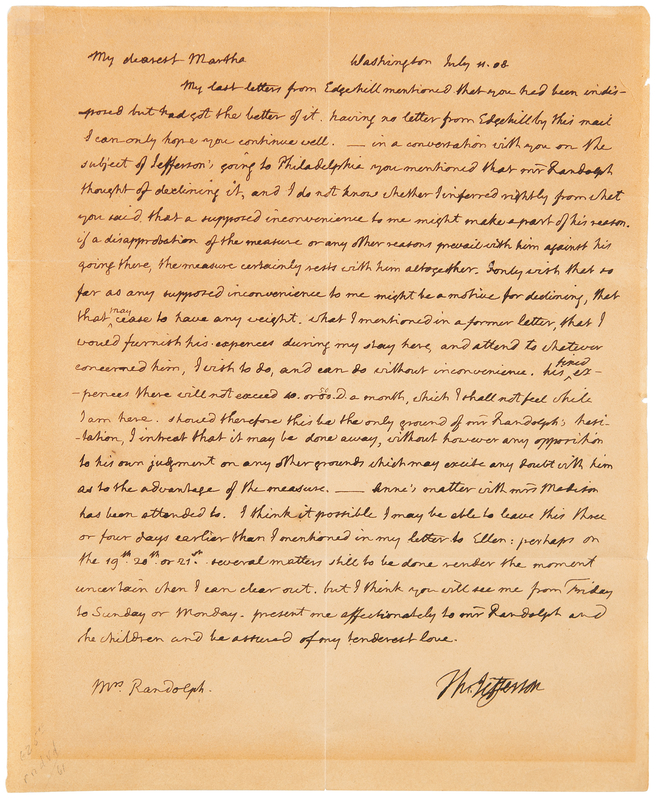 My dearest Martha Washington July 11. 08
My last letters from Edgehill mentioned that you had been indis-
-posed but had got the better of it. having no letter from Edgehill by this mail
I can only hope you continue well. — in a conversation with you on the
subject of Jefferson's going to Philadelphia you mentioned that mr Randolph
thought of declining it, and I do not know whether I inferred rightly from what
you said, that a supposed inconvenience to me might make a part of his reason.
if a disapprobation of the measure or any other reasons prevail with him against his
going there, the measure certainly rests with him altogether. I only wish that so
far as any supposed inconvenience to me might be a motive for declining, that
that may cease to have any weight. what I mentioned in a former letter, that I
would furnish his expences during my stay here, and attend to whatever
concerned him, I wish to do, and can do without inconvenience. his fixed ex-
-pences there will not exceed or D. a month, which I shall not feel while
I am here. should therefore this be the only ground of mr Randolph's hesi-
-tation, I intreat that it may be done away, without however any opposition
to his own judgment on any other grounds which may excite any doubt with him
as to the advantage of the measure. — Anne's matter with mrs Madison
has been attended to. I think it possible I may be able to leave this three
or four days earlier than I mentioned in my letter to Ellen: perhaps on
the 19th 20th or 21st. several matters still to be done render the moment
uncertain when I can clear out. but I think you will see me from Friday
to Sunday or Monday. present me affectionately to mr Randolph and
he children and be assured of my tenderest love.
Th: Jefferson
Mrs Randolph.